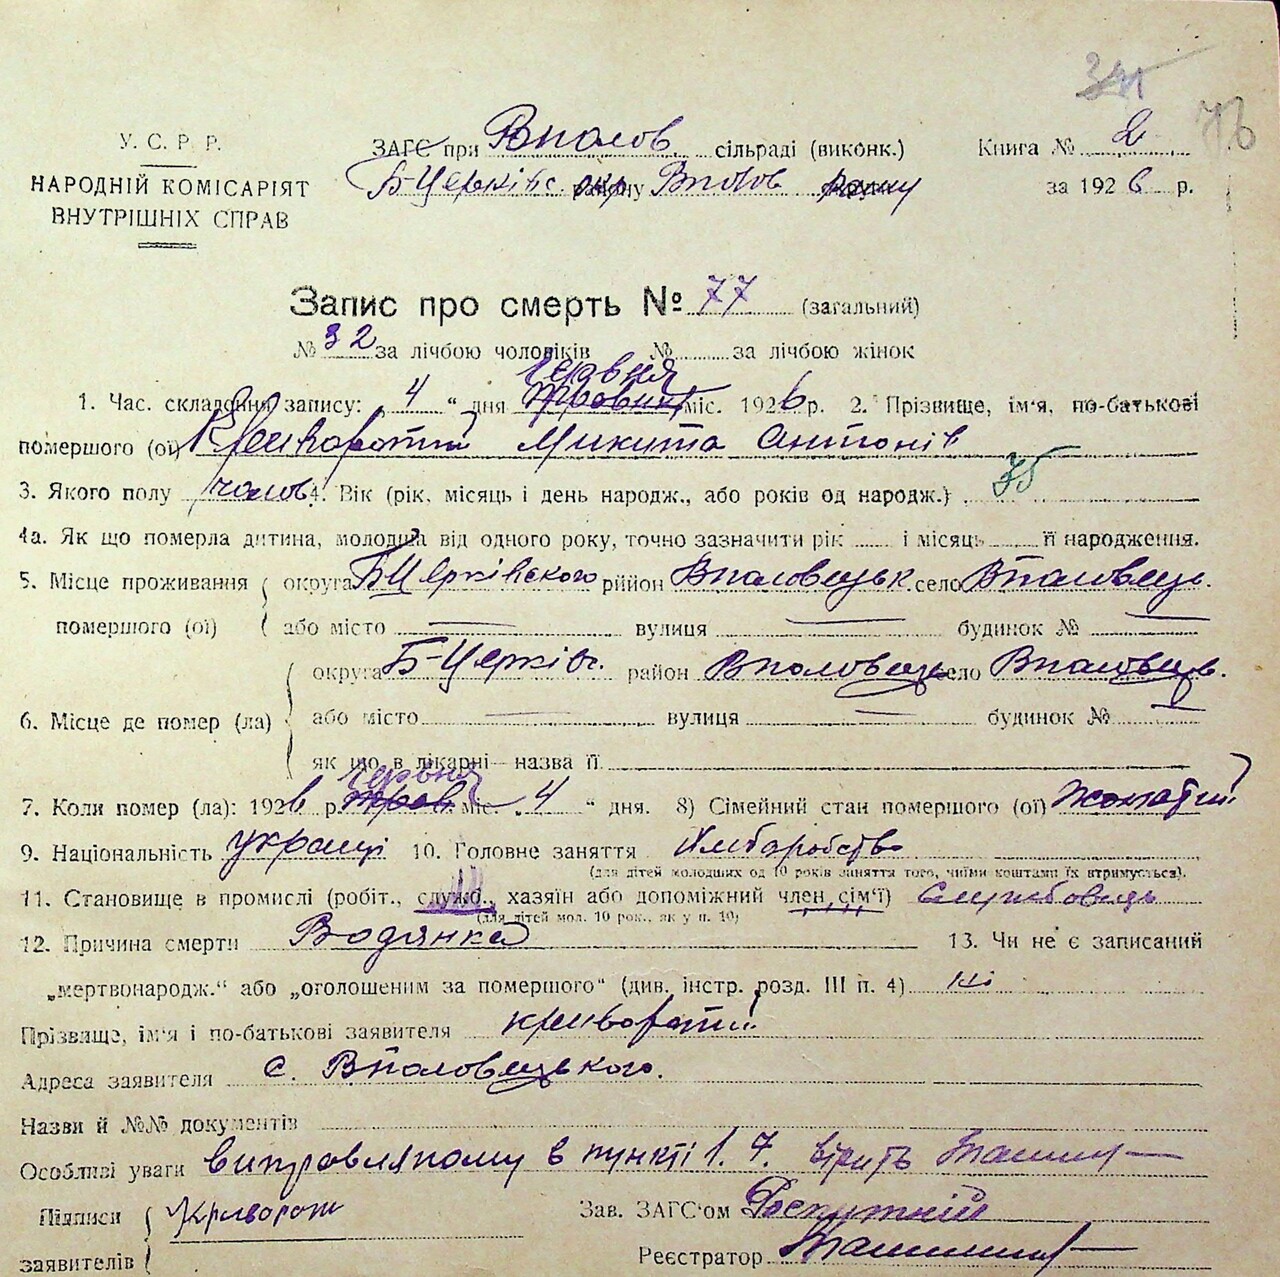 345
76
У. С. Р. Р.
НАРОДНІЙ КОМІСАРІЯТ
ВНУТРІШНІХ СПРАВ
ЗАГС при Вполов. сільраді (виконк.)
Б-Церківс. окр району Вполов рану
Книга № 2
за 1926 р.
Запис про смерть № 77 (загальний)
№ 32 за лічбою чоловіків № за лічбою жінок
червня
1. Час. складення запису: „4“ дня травня міс. 1926 р. 2. Прізвище, ім'я, по-батькові
помершого (ої) Криворотий Микита Антонів
3. Якого полу чолов 4. Вік (рік, місяць і день народж., або років од народж.) 75
4а. Як що померла дитина, молодша від одного року, точно зазначити рік і місяць її народження.
5. Місце проживання помершого (ої)
округа Б-Церківского рййон Вполовецьк. село Вполовець.
або місто — вулиця — будинок № —
6. Місце де помер (ла)
округа Б-Церків. район Вполовець село Вполовець.
або місто — вулиця — будинок № —
як що в лікарні — назва її
червня
7. Коли помер (ла): 1926 р. трав. міс. „4“ дня. 8) Сімейний стан помершого (ої) жонатий
9. Національність украінці 10. Головне заняття хліборобство
(для дітей молодших од 10 років заняття того, чиїми коштами їх втримується).
11. Становище в промислі (робіт., служб., хазяїн або допоміжний член сім'ї) Службовець
(для дітей мол. 10 рок., як у п. 10)
12. Причина смерти Водянка 13. Чи не є записаний
„мертвонародж.“ або „оголошеним за помершого“ (див. інстр. розд. III п. 4) ні
Прізвище, ім'я і по-батькові заявителя Криворотий
Адреса заявителя с. Вполовецького.
Назви й №№ документів
Особливі уваги виправляному в пункті 1. 7. вірить
Підписи заявителів Криворот
Зав. ЗАГС'ом
Реєстратор